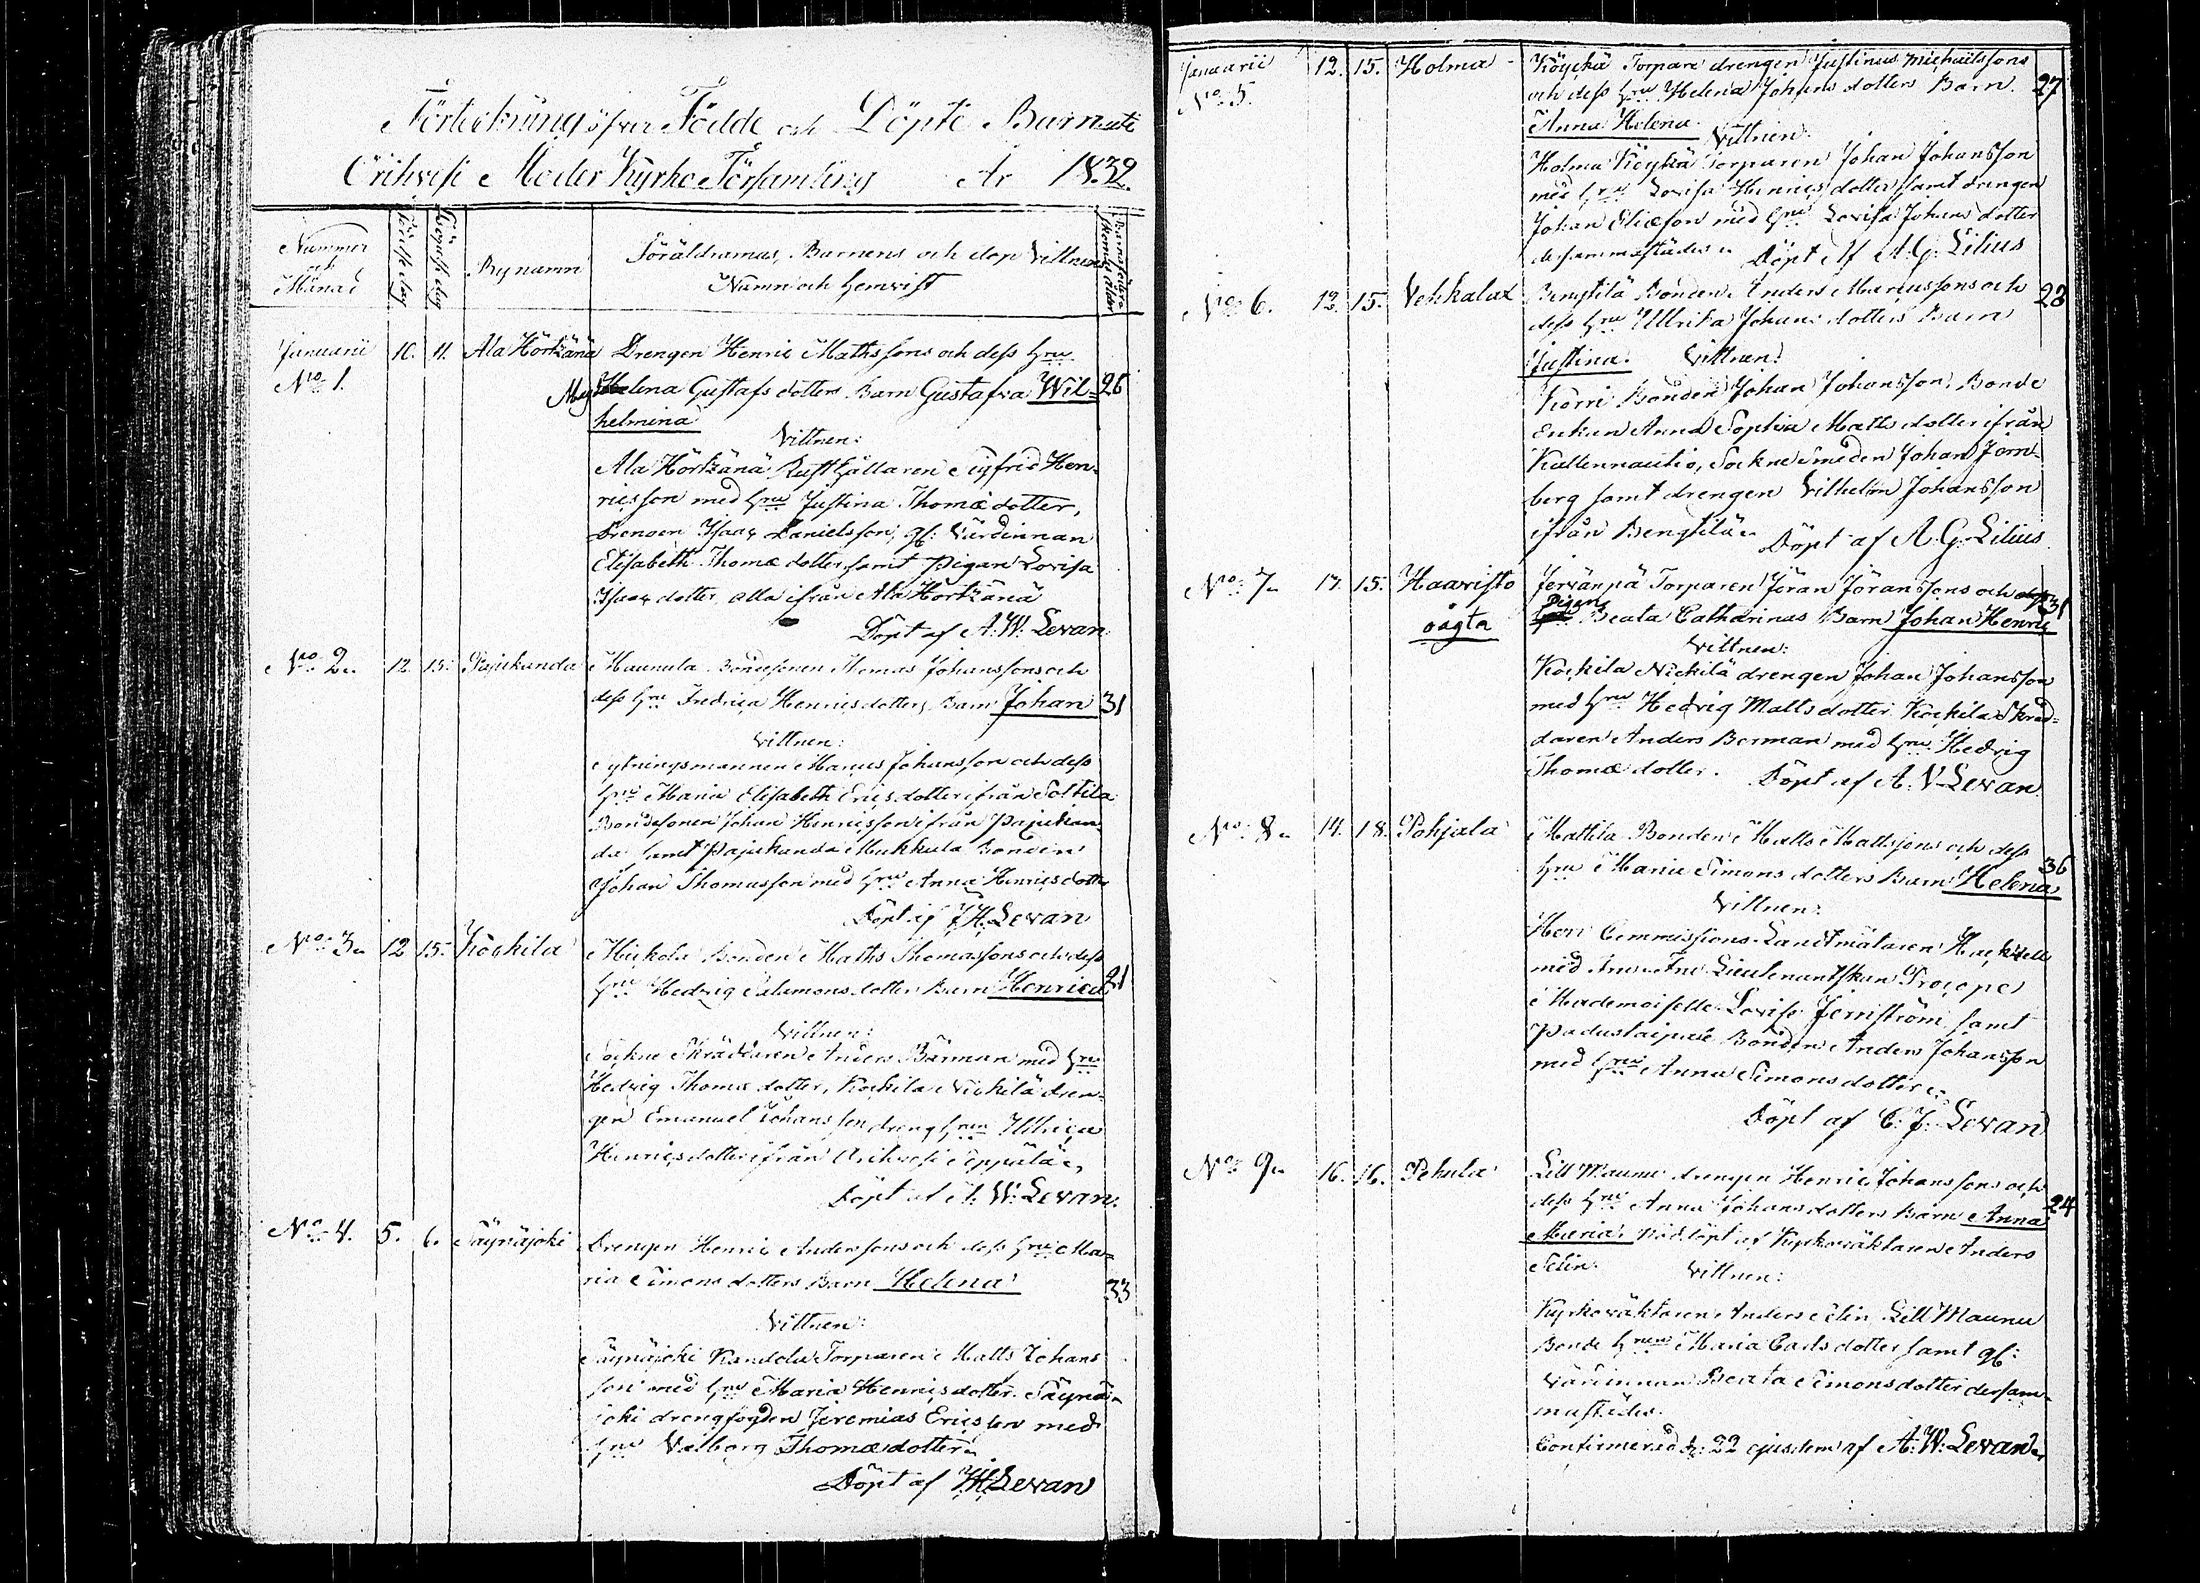 Förteckning öfver Födde och Döpte Barn uti
Orihvesi Moder Kyrko Församling År 1832.
Nummer och Månad
Födelse dag
Döpelse dag
Bynamn
Föräldrarnas, Barnens och dop Vittnens
Namn och hemvist
Januarii 10. 11. Ala Hörtzänä Drengen Henric Mathssons och dess hru
No 1. Magdalena Gustafs dotters Barn Gustafva Wil= 26
helmina
Vittnen:
Ala Hörtzänä Rusthållaren Sigfrid Hen-
ricsson med hru Justina Thomæ dotter,
Drengen Isaac Danielsson, gl: Värdinnan
Elisabeth Thomæ dotter samt Pigan Lovisa
Isaacs dotter, alla ifrån Ala Hörtzänä
Döpt af A. W. Levan
No 2. 12. 15. Pajukanda Maunula Bondesonen Thomas Johanssons och
dess hru Fredrica Henrics dotters Barn Johan 31
Vittnen:
Sytningsmannen Marcus Johansson och dess
hru Maria Elisabeth Erics dotter ifrån Soltila
Bondesonen Johan Henricsson ifrån Pajukan-
da samt Pajukanda Mukkula Bonden
Johan Thomasson med hru Anna Henrics dotter
Döpt af J. H. Levan
No 3. 12 15. Köckila Mickola Bonden Maths Thomassons och dess
hru Hedvig Salamons dotters Barn Henrica 21
Vittnen:
Sockne Skräddaren Anders Bärman med hru
Hedvig Thomæ dotter, Kockila Nickilä dren-
gen Emanuel Johansson dreng hrun Ulrica
Henrics dotter ifrån Orihvesi Seppälä.
Döpt af A. W. Levan.
No 4. 5. 6. Säynäjoki Drengen Henric Anderssons och dess hru Ma=
ria Simons dotters Barn Helena 33
Vittnen:
Säynäjoki Torparen Matts Johans
son med hru Maria Henrics dotter. Säynä-
joki drengfogden Jeremias Ericsson med
hru Valborg Thomæ dotter.
Döpt af J. H. Levan
Januarii 12. 15. Holma Köyckä Torpare drengen Justinus Michaelssons
No 5. och dess hru Helena Johans dotters Barn 27
Anna Helena.
Vittnen:
Holma Köyckä Torparen Johan Johansson
med hru Lovisa Henrics dotter samt drengen
Johan Eliæson med hru Lovisa Johans dotter
dersammastädes. Döpt af A. G. Lilius
No 6. 12. 15. Vehkalax Bengtilä Bonden Anders Marcussons och 28
dess hru Ullrika Johans dotters Barn
Justina. Vittnen:
Körri Bonden Johan Johansson, Bonde
Enkan Anna Sophia Matts dotter ifrån
Kallennautio, Sockne Smeden Johan Jörn-
berg samt drengen Vilhelm Johansson
ifrån Bengtilä. Döpt af A. G. Lilius
No 7. 17. 15. Haavisto Jervänpä Torparen Jöran Jöranssons och 31
oägta pigan Beata Catharinas Barn Johan Henric
Vittnen:
Kockila Nickilä drengen Johan Johansson
med hru Hedvig Matts dotter. Kockila Skräd=
daren Anders Berman med hru Hedvig
Thomæ dotter. Döpt af A. V. Levan.
No 8. 14. 18. Pohjala Mattila Bonden Matts Mattssons och dess
hru Maria Simons dotters Barn Helena 36
Vittnen:
Herr Commissions Landtmätaren Hackzell
med Fru Lieutenantskan Procopé
Mademoiselle Lovise Jernström samt
Padustaipale Bonden Anders Johansson
med hru Anna Simons dotter.
Döpt af C. J. Levan
No 9. 16. 16. Pehula Lill Maunu drengen Henric Johanssons och
dess hru Anna Johans dotters Barn Anna 24
Maria. Nöddöpt af Kyrkoväktaren Anders
Selin. Vittnen:
Kyrkoväktaren Anders Selin Lill Maunu
Bonde hrun Maria Carls dotter samt gl:
Värdinnan Beata Simons dotter dersam-
mastädes.
Confirmerad d: 22 ejusdem af A. W. Levan.